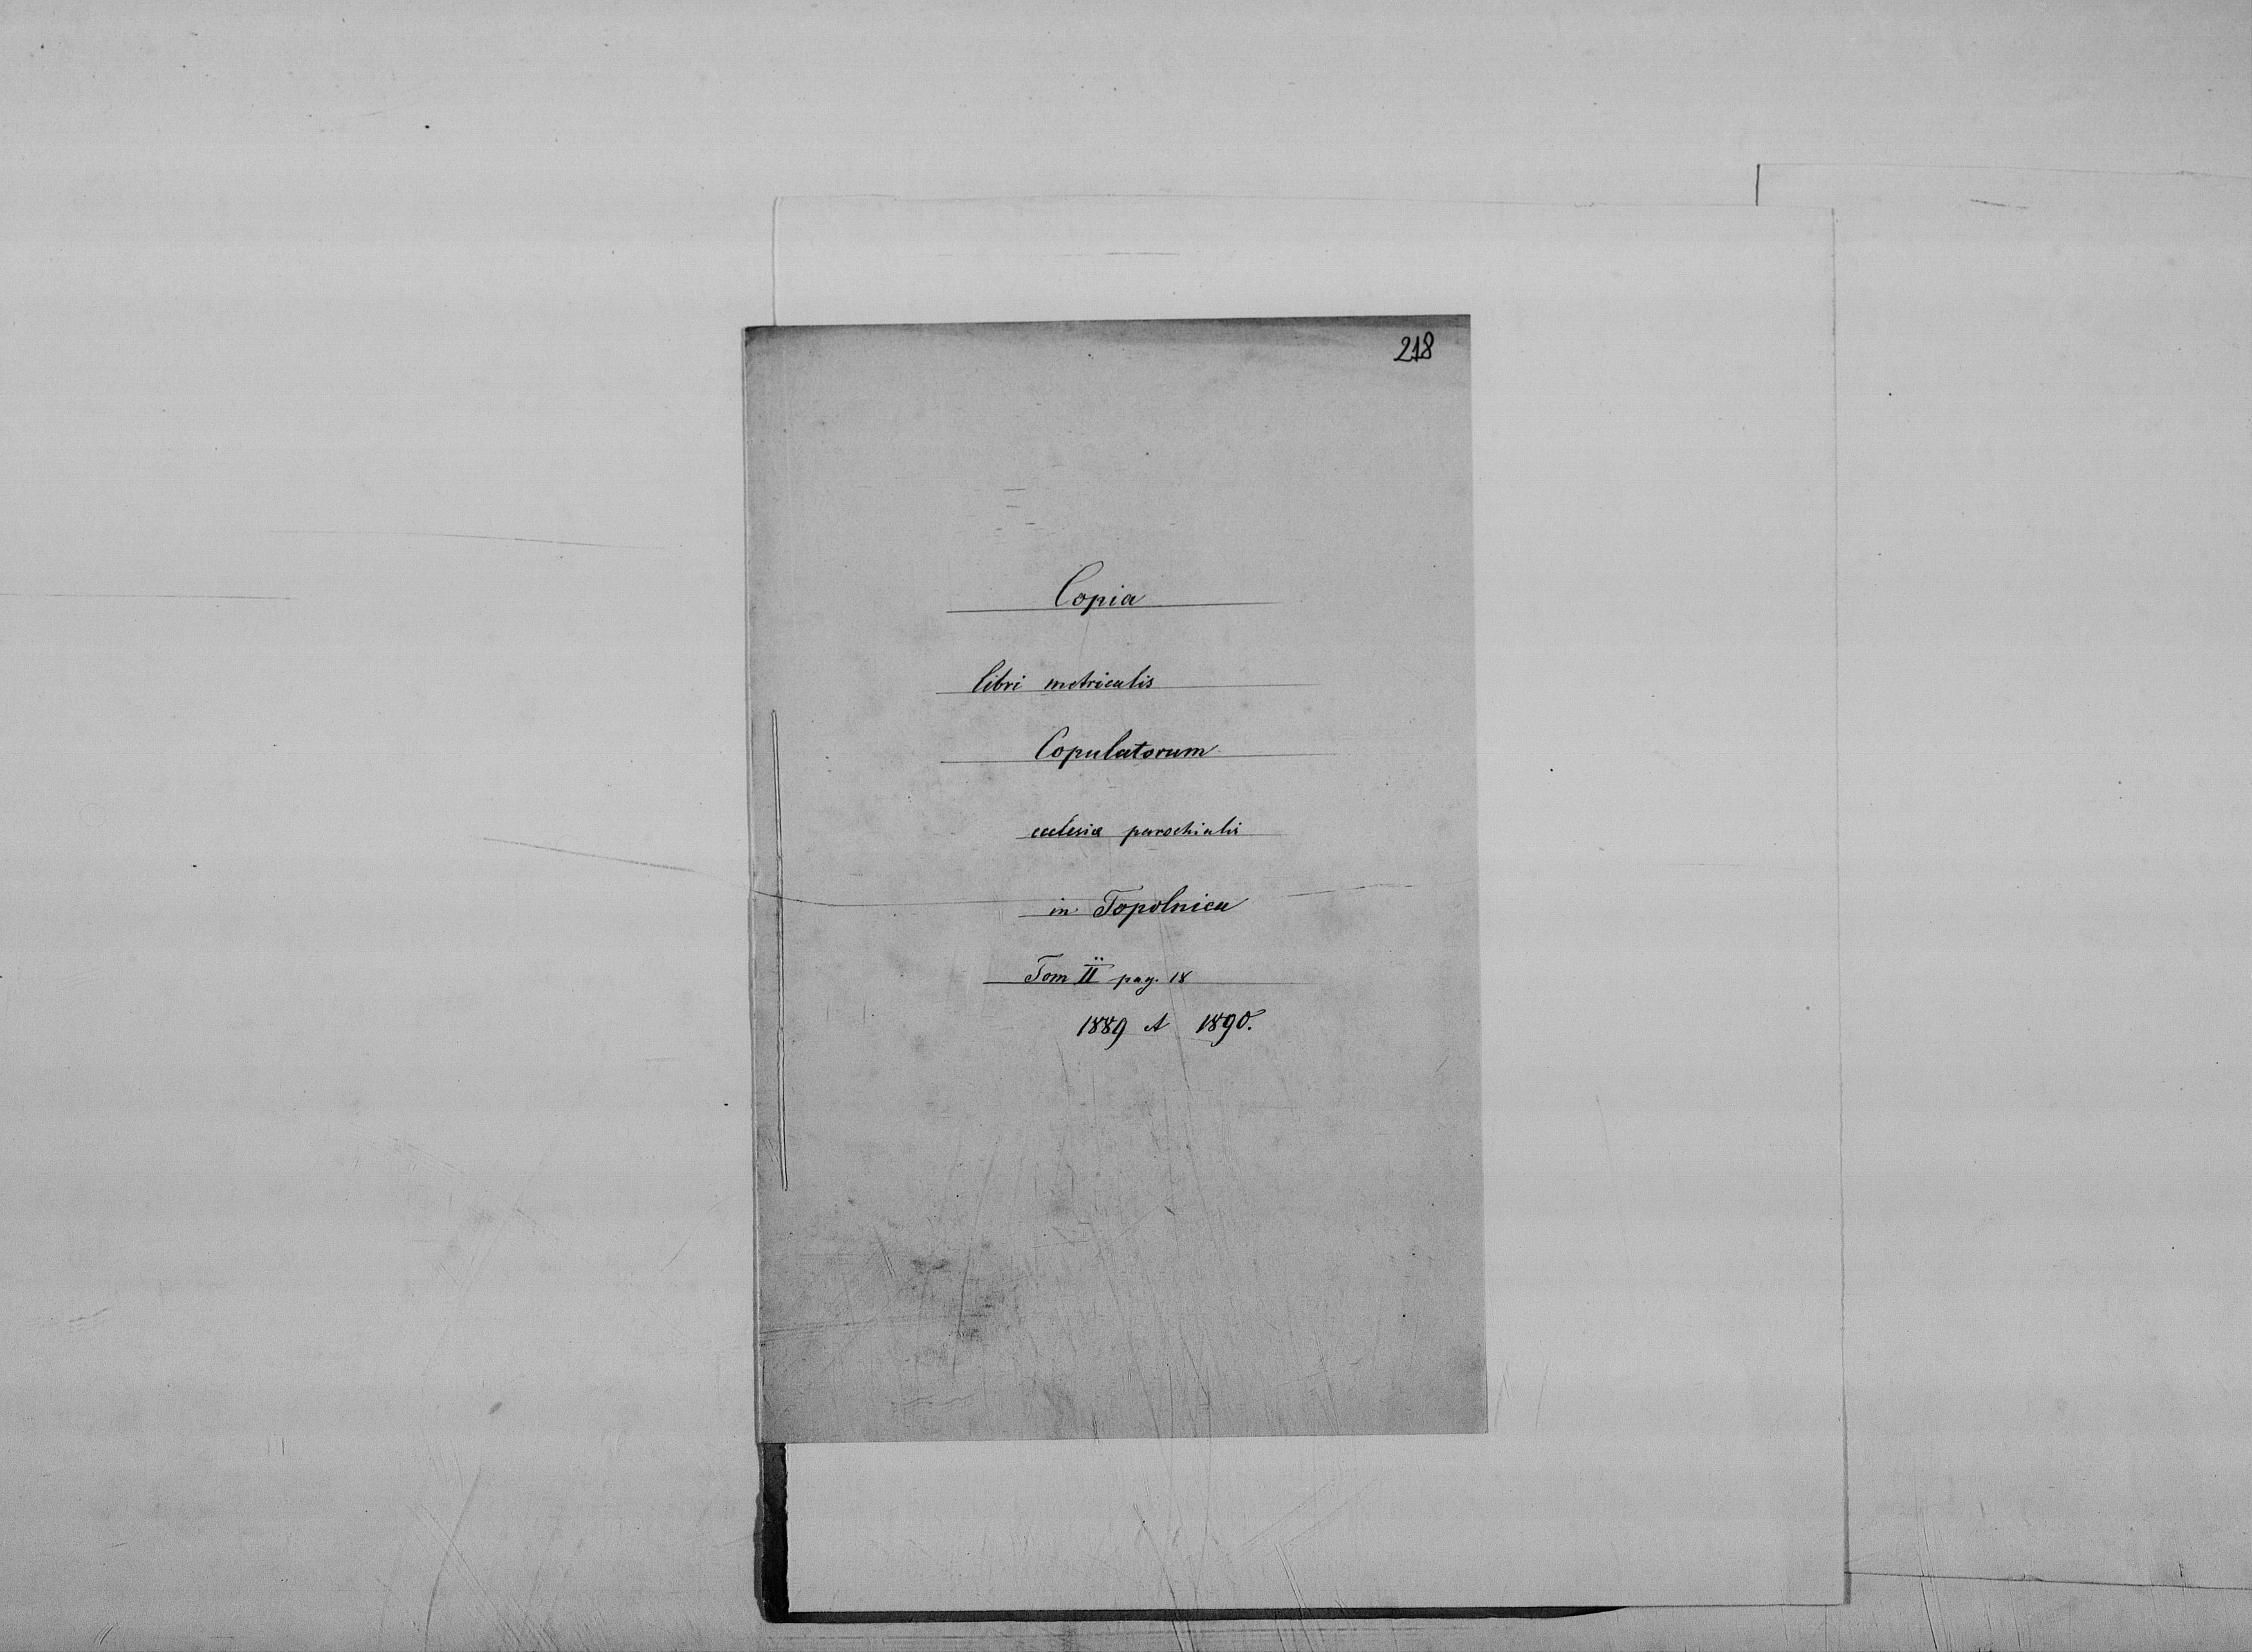 218
Copia
libri metricalis
Copulatorum
eclesia parochialis
in Topolnica
Tom II pag. 18
1889 et 1890.